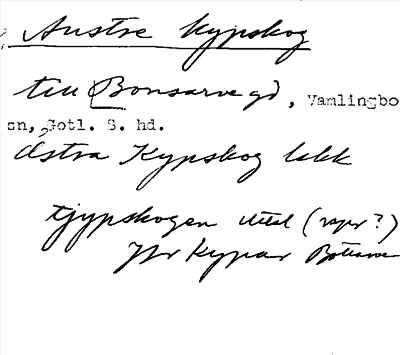 Austre Kypskog
till Bonsarve gd, Vamlingbo
sn, Gotl. S. hd.
Östra Kypskog lekk
tjypskogen uttal (
Jfr Kypar Bottarve